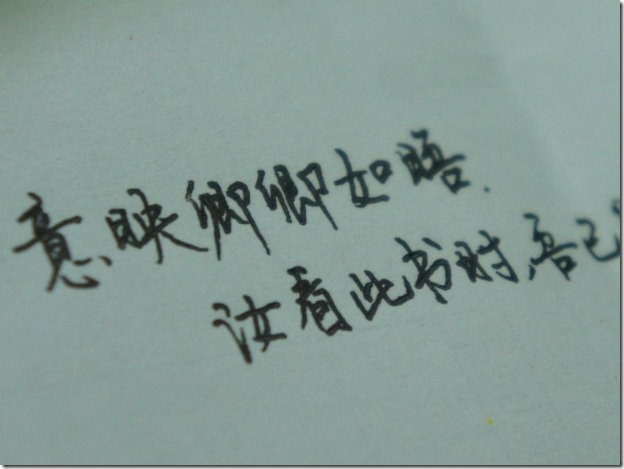 意映卿卿如晤.
汝看此书时,吾已